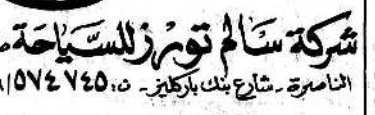 شركة سالم تورز للسياحة
الناصرة - شارع بنك باركليز - ت: ٥٧٤٧٤٥/